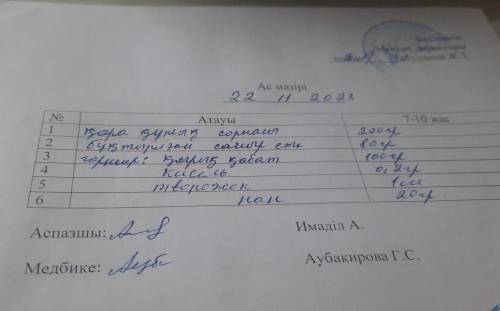 Бекітемін
Мектеп директоры
Ж.Т.
Ас мәзірі
22 11 2023
№ Атауы 7-10 жас
1 қара құмық сорпасы 200гр
2 бұқтырылған сиыр еті 80гр
3 гарнир: қырық қабат 100гр
4 Кисель 0,2гр
5 творожок 1шт
6 нан 20гр
Аспазшы: Имаділ А.
Медбике: Аубакирова Г.С.